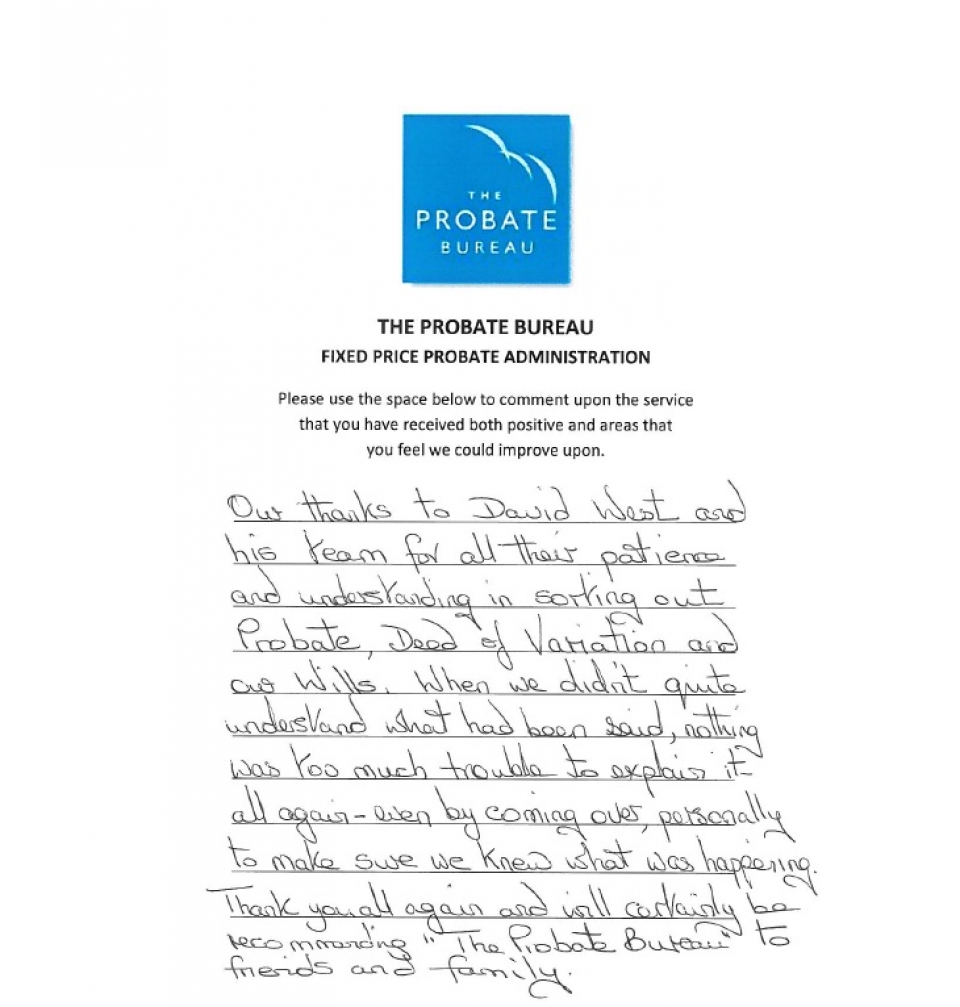 THE
PROBATE
BUREAU
THE PROBATE BUREAU
FIXED PRICE PROBATE ADMINISTRATION
Please use the space below to comment upon the service
that you have received both positive and areas that
you feel we could improve upon.
Our thanks to David West and
his team for all their patience
and understanding in sorting out
Probate, Deed of Variation and
our Wills. When we didn't quite
understand what had been said, nothing
was too much trouble to explain it
all again - even by coming over, personally
to make sure we knew what was happening.
Thank you all again and will certainly be
recommending "The Probate Bureau" to
friends and family.